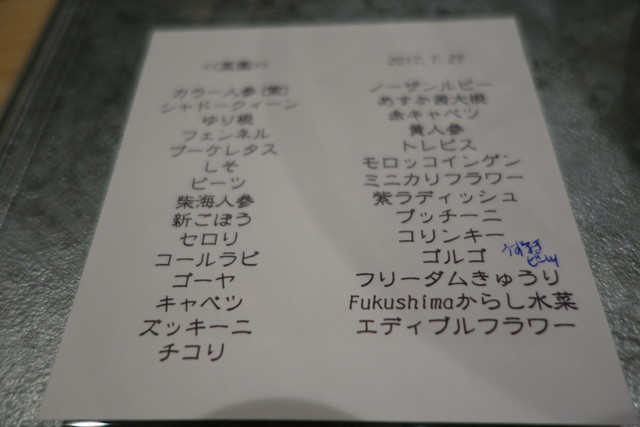 2017. 7. 27
カラー人参(紫)
シャドークィーン
ゆり根
フェンネル
ブーケレタス
しそ
ビーツ
柴海人参
新ごぼう
セロリ
コールラビ
ゴーヤ
キャベツ
ズッキーニ
チコリ
ノーザンルビー
あすか香大根
糸キャベツ
黄人参
トレビス
モロッコインゲン
ミニカリフラワー
紫ラディッシュ
プッチーニ
コリンキー
ゴルゴ
フリーダムきゅうり
Fukushimaからし水菜
エディブルフラワー